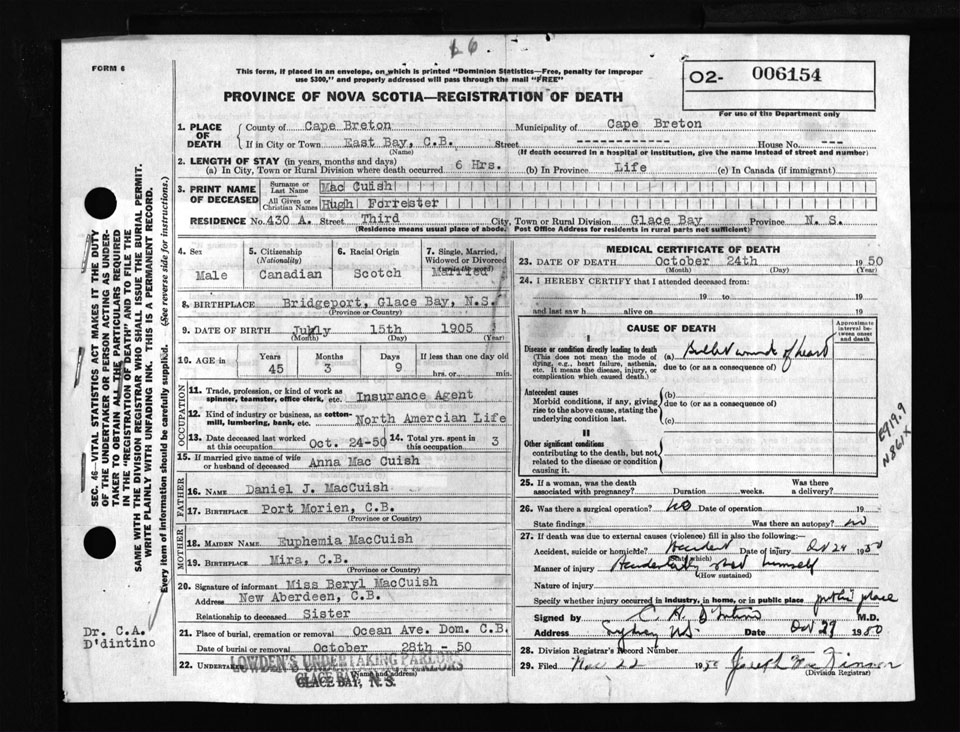 L 6
FORM 6
This form, if placed in an envelope, on which is printed "Dominion Statistics—Free, penalty for improper
use $300," and properly addressed will pass through the mail "FREE"
O2- 006154
For use of the Department only
PROVINCE OF NOVA SCOTIA—REGISTRATION OF DEATH
1. PLACE OF DEATH { County of Cape Breton Municipality of Cape Breton
If in City or Town East Bay, C.B. Street ------------- House No. ---
(Name) (If death occurred in a hospital or institution, give the name instead of street and number)
2. LENGTH OF STAY (in years, months and days)
(a) In City, Town or Rural Division where death occurred 6 Hrs. (b) In Province Life (c) In Canada (if immigrant)
3. PRINT NAME OF DECEASED { Surname or Last Name Mac Cuish
All Given or Christian Names Hugh Forrester
RESIDENCE No. 430 A. Street Third City, Town or Rural Division Glace Bay Province N. S.
(Residence means usual place of abode. Post Office Address for residents in rural parts not sufficient)
4. Sex Male
5. Citizenship (Nationality) Canadian
6. Racial Origin Scotch
7. Single, Married, Widowed or Divorced (write the word) Married
8. BIRTHPLACE Bridgeport, Glace Bay, N.S.
(Province or Country)
9. DATE OF BIRTH July 15th 1905
(Month) (Day) (Year)
10. AGE IN Years Months Days If less than one day old
45 3 9 hrs. or min.
OCCUPATION
11. Trade, profession, or kind of work as spinner, teamster, office clerk, etc. Insurance Agent
12. Kind of industry or business, as cotton-mill, lumbering, bank, etc. North Amercian Life
13. Date deceased last worked at this occupation Oct. 24-50 14. Total yrs. spent in this occupation 3
15. If married give name of wife or husband of deceased Anna Mac Cuish
FATHER
16. NAME Daniel J. MacCuish
17. BIRTHPLACE Port Morien, C.B.
(Province or Country)
MOTHER
18. MAIDEN NAME Euphemia MacCuish
19. BIRTHPLACE Mira, C.B.
(Province or Country)
20. Signature of informant Miss Beryl MacCuish
Address New Aberdeen, C.B.
Relationship to deceased Sister
21. Place of burial, cremation or removal Ocean Ave. Dom. C.B.
Date of burial or removal October 28th - 50
22. UNDERTAKER LOWDEN'S UNDERTAKING PARLORS
GLACE BAY, N. S.
(Name and address)
MEDICAL CERTIFICATE OF DEATH
23. DATE OF DEATH October 24th 1950
(Month) (Day) (Year)
24. I HEREBY CERTIFY that I attended deceased from:
19 to 19
and last saw h alive on 19
CAUSE OF DEATH
Approximate interval between onset and death
I
Disease or condition directly leading to death (a) Bullet wounds of heart
(This does not mean the mode of dying, e.g., heart failure, asthenia, etc. It means the disease, injury, or complication which caused death.)
due to (or as a consequence of)
Antecedent causes
Morbid conditions, if any, giving rise to the above cause, stating the underlying condition last.
(b)
due to (or as a consequence of)
(c)
II
Other significant conditions
contributing to the death, but not related to the disease or condition causing it.
E919.9
N861X
25. If a woman, was the death associated with pregnancy? Duration weeks. Was there a delivery?
26. Was there a surgical operation? No Date of operation 19
State findings Was there an autopsy? no
27. If death was due to external causes (violence) fill in also the following:
Accident, suicide or homicide? Accident Date of injury Oct 24 1950
(State which)
Manner of injury Accidentally shot himself
(How sustained)
Nature of injury
Specify whether injury occurred in industry, in home, or in public place public place
Signed by C. A. D'Intino M.D.
Address Sydney NS. Date Oct 29 1950
28. Division Registrar's Record Number
29. Filed Nov 22 1950 Joseph Mac Kinnon
(Division Registrar)
SEC. 46—VITAL STATISTICS ACT MAKES IT THE DUTY
OF THE UNDERTAKER OR PERSON ACTING AS UNDER-
TAKER TO OBTAIN ALL THE PARTICULARS REQUIRED
IN THE "REGISTRATION OF DEATH" AND TO FILE THE
SAME WITH THE DIVISION REGISTRAR WHO SHALL ISSUE THE BURIAL PERMIT.
WRITE PLAINLY WITH UNFADING INK. THIS IS A PERMANENT RECORD.
Every item of information should be carefully supplied. (See reverse side for instructions.)
Dr. C.A.
D'dintino